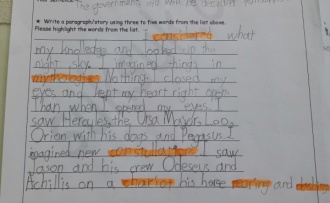 The government will
★ Write a paragraph/story using three to five words from the list above.
Please highlight the words from the list.
I considered what
my knowledge and looked up the
night sky. I imagined things in
Nothing. I closed my
eyes and kept my heart right open
Than when I opened my eyes I
saw Hercules, the Ursa Major,
Orion with his dogs and Pegasus. I
imagined new constullations I saw
Jason and his crew Odeseus and
Achillis on a chariot his horse roaring and